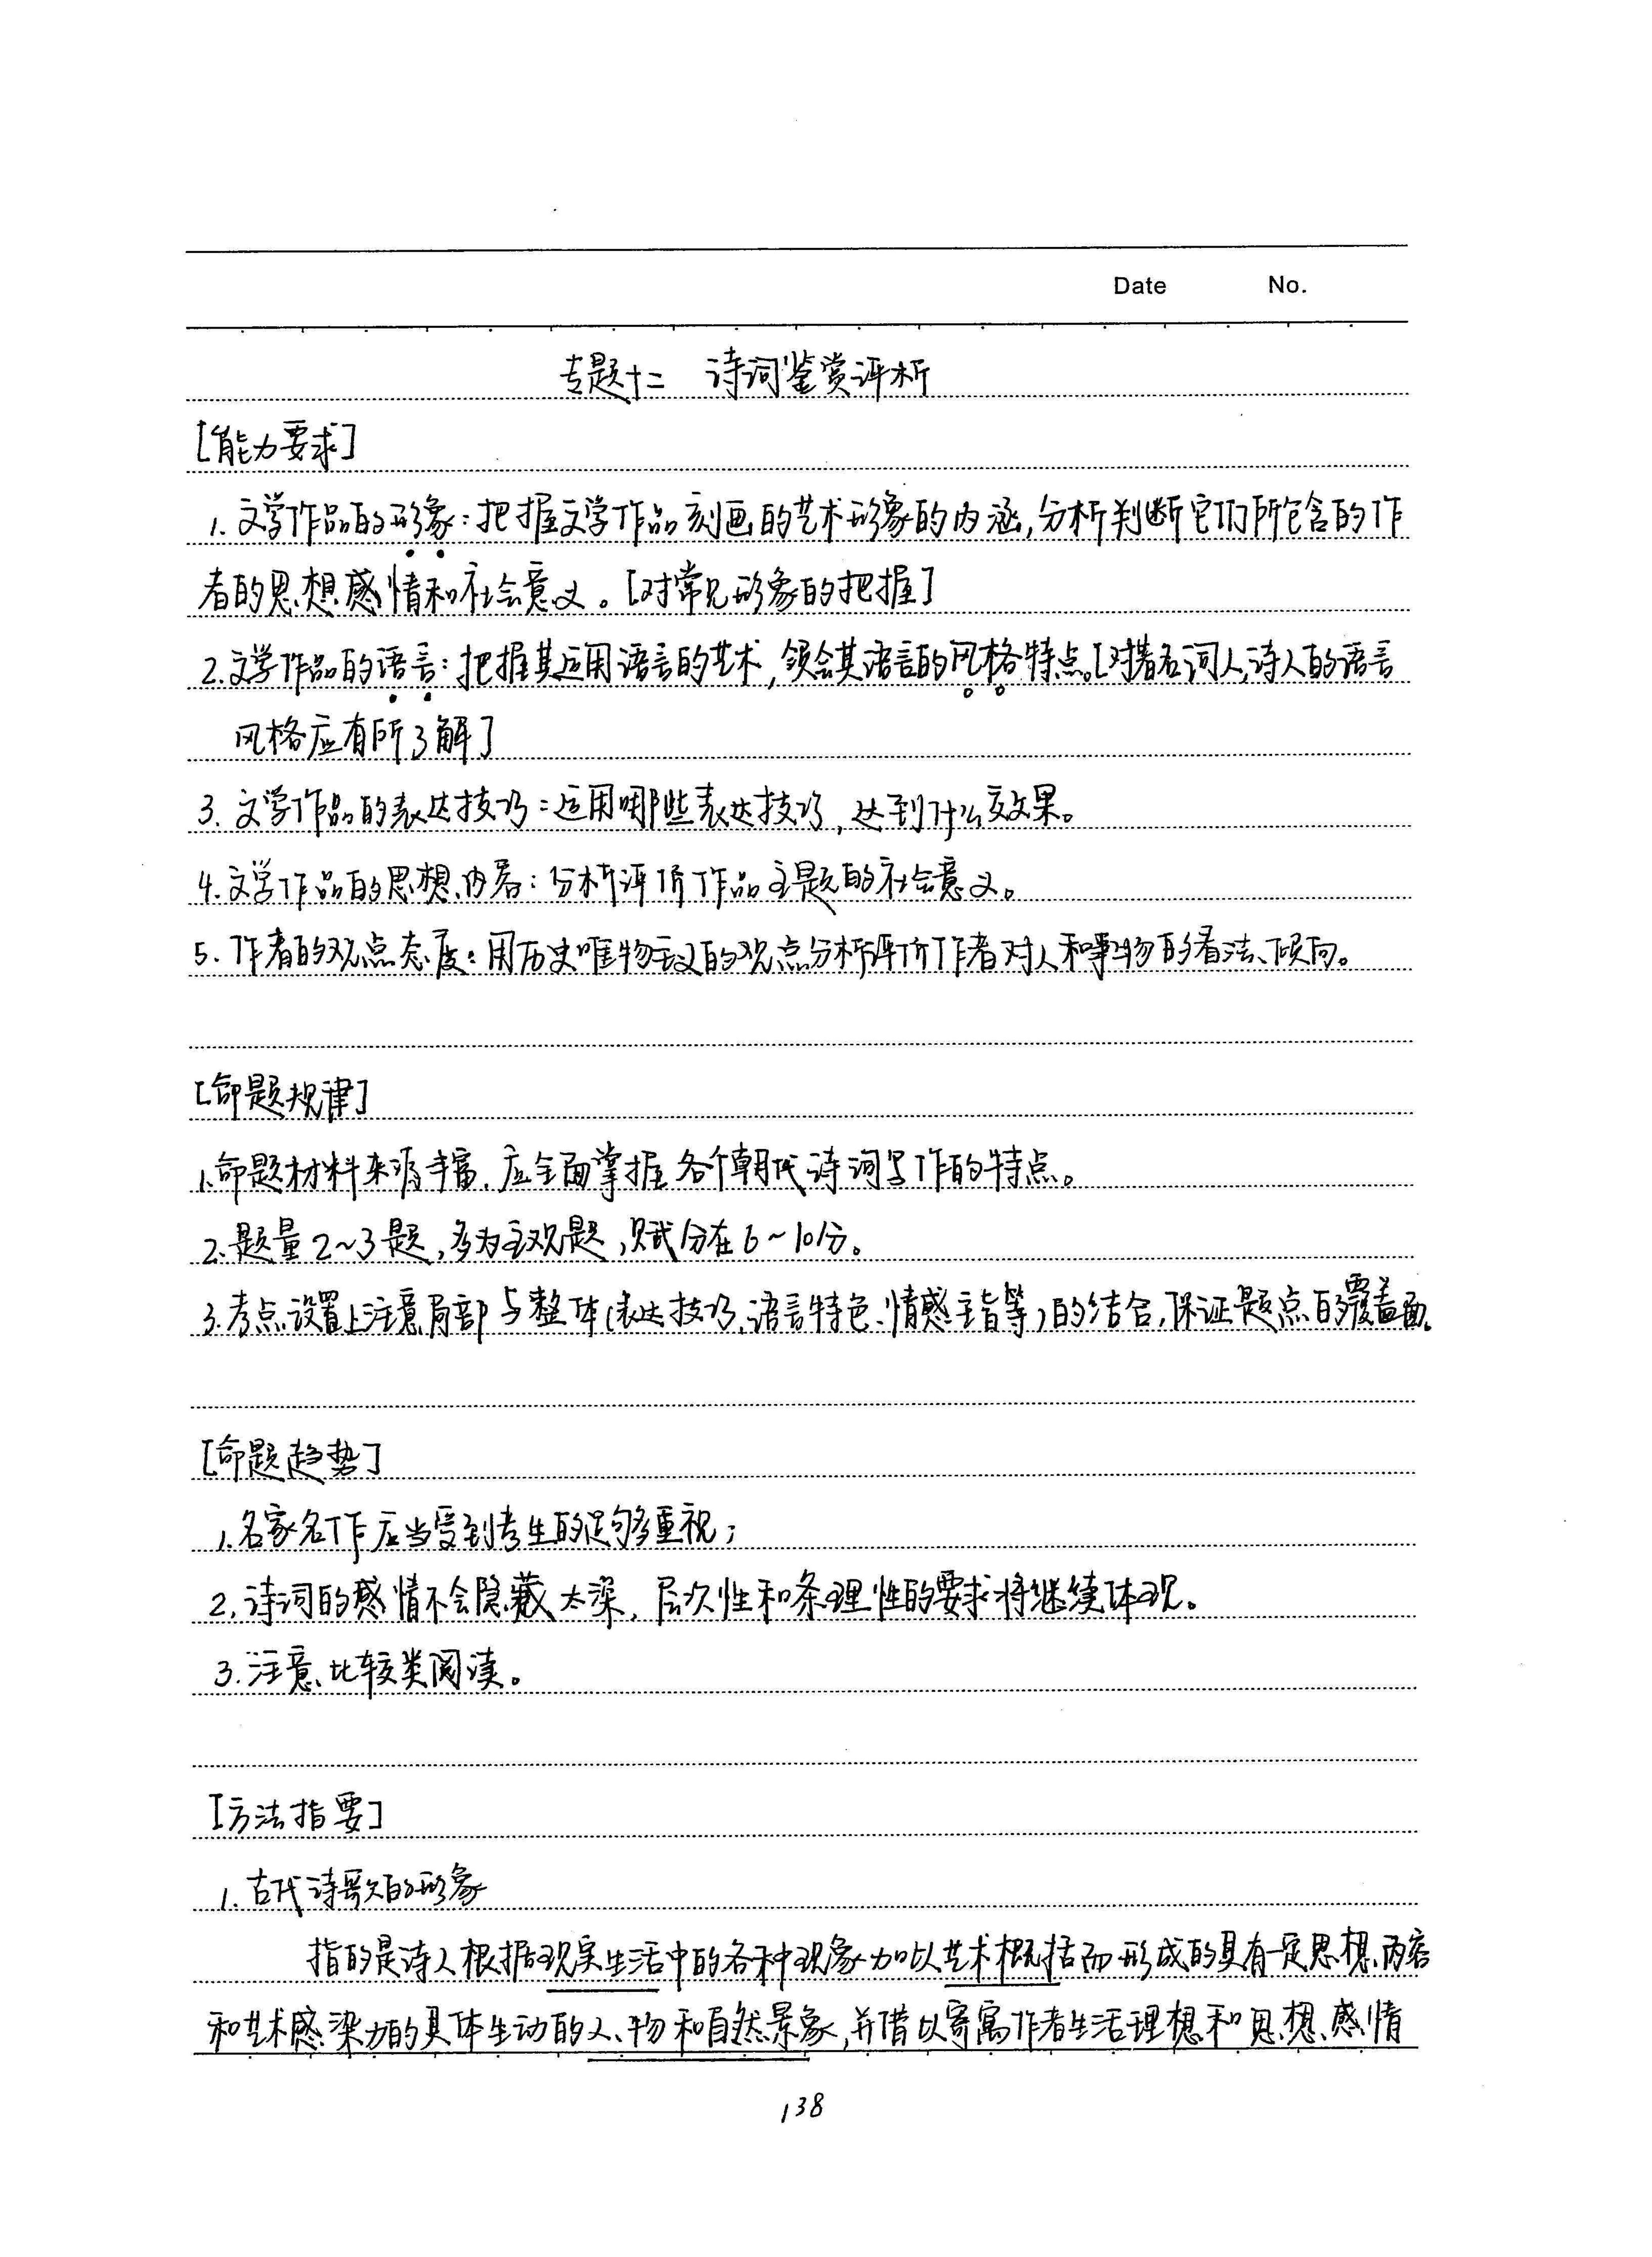 Date No.
专题十二 诗词鉴赏评析
[能力要求]
1. 文学作品的形象：把握文学作品刻画的艺术形象的内涵，分析判断它们所包含的作
者的思想感情和社会意义。[对常见形象的把握]
2. 文学作品的语言：把握其运用语言的艺术，领会其语言的风格特点。[对著名词人、诗人的语言
风格应有所了解]
3. 文学作品的表达技巧：运用哪些表达技巧，达到什么效果。
4. 文学作品的思想内容：分析评价作品主题的社会意义。
5. 作者的观点态度：用历史唯物主义的观点分析评价作者对人和事物的看法、倾向。
[命题规律]
1. 命题材料来源丰富，应全面掌握各个朝代诗词写作的特点。
2. 题量2~3题，多为主观题，赋分在6~10分。
3. 考点设置上注意局部与整体（表达技巧、语言特色、情感主旨等）的结合，保证题点的覆盖面。
[命题趋势]
1. 名家名作应当受到考生的足够重视；
2. 诗词的感情不会隐藏太深，层次性和条理性的要求将继续体现。
3. 注意比较类阅读。
[方法指要]
1. 古代诗歌的形象
指的是诗人根据现实生活中的各种现象加以艺术概括而形成的具有一定思想内容
和艺术感染力的具体生动的人、物和自然景象，并借以寄寓作者生活理想和思想感情
138